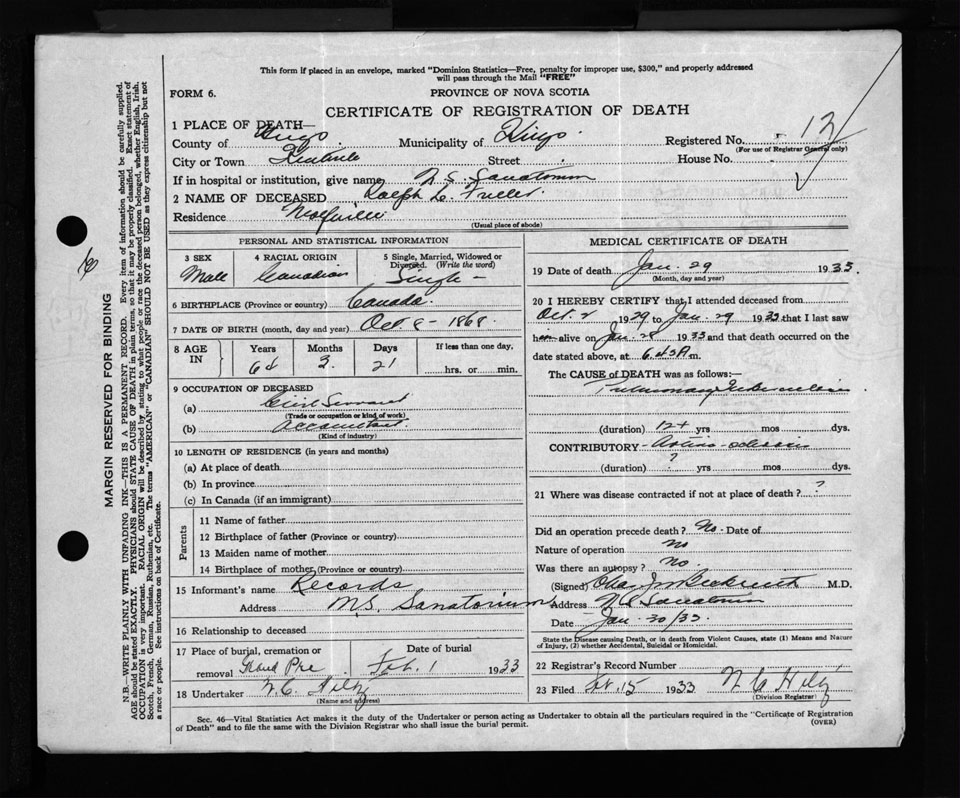 This form if placed in an envelope, marked "Dominion Statistics—Free, penalty for improper use, $300," and properly addressed
will pass through the Mail "FREE"
FORM 6.
PROVINCE OF NOVA SCOTIA
CERTIFICATE OF REGISTRATION OF DEATH
1 PLACE OF DEATH—
County of Kings Municipality of Kings Registered No. 13
(For use of Registrar General only)
City or Town Kentville Street House No.
If in hospital or institution, give name N.S. Sanatorium
2 NAME OF DECEASED Ralph L. Fuller
Residence Wolfville
(Usual place of abode)
PERSONAL AND STATISTICAL INFORMATION
3 SEX Male
4 RACIAL ORIGIN Canadian
5 Single, Married, Widowed or
Divorced. (Write the word)
Single
6 BIRTHPLACE (Province or country) Canada.
7 DATE OF BIRTH (month, day and year) Oct. 8 - 1868
8 AGE IN
Years Months Days If less than one day,
64 3 21 hrs. or min.
9 OCCUPATION OF DECEASED
(a) Civil Servant
(Trade or occupation or kind of work)
(b) Accountant.
(Kind of industry)
10 LENGTH OF RESIDENCE (in years and months)
(a) At place of death
(b) In province
(c) In Canada (if an immigrant)
Parents
11 Name of father
12 Birthplace of father (Province or country)
13 Maiden name of mother
14 Birthplace of mother (Province or country)
15 Informant's name Records
Address N.S. Sanatorium
16 Relationship to deceased
17 Place of burial, cremation or Date of burial
removal Grand Pre Feb. 1 1933
18 Undertaker
(Name and address)
MEDICAL CERTIFICATE OF DEATH
19 Date of death Jan. 29 1933.
(Month, day and year)
20 I HEREBY CERTIFY that I attended deceased from
Oct. 2 1929 to Jan. 29 1933 that I last saw
him alive on Jan. 28 1933 and that death occurred on the
date stated above, at 6.43 A m.
The CAUSE of DEATH was as follows:—
Pulmonary Tuberculosis.
(duration) 12+ yrs mos dys.
CONTRIBUTORY Arterio-sclerosis
(duration) ? yrs mos dys.
21 Where was disease contracted if not at place of death? ?
Did an operation precede death? No Date of
Nature of operation no
Was there an autopsy? no.
(Signed) Beckwith M.D.
Address N S Sanatorium
Date Jan. 30/33.
State the Disease causing Death, or in death from Violent Causes, state (1) Means and Nature
of Injury, (2) whether Accidental, Suicidal or Homicidal.
22 Registrar's Record Number
23 Filed Feb. 15 1933
(Division Registrar)
Sec. 46—Vital Statistics Act makes it the duty of the Undertaker or person acting as Undertaker to obtain all the particulars required in the "Certificate of Registration
of Death" and to file the same with the Division Registrar who shall issue the burial permit. (OVER)
MARGIN RESERVED FOR BINDING
N.B.—WRITE PLAINLY WITH UNFADING INK—THIS IS A PERMANENT RECORD. Every item of information should be carefully supplied.
AGE should be stated EXACTLY. PHYSICIANS should STATE CAUSE OF DEATH in plain terms, so that it may be properly classified. Exact statement of
OCCUPATION is very important. RACIAL ORIGIN will be described by stating to what people or race the deceased person belonged, whether English, Irish,
Scotch, French, German, Russian, Ruthenian, etc. The terms "AMERICAN" or "CANADIAN" SHOULD NOT BE USED as they express citizenship but not
a race or people. See instructions on back of Certificate.